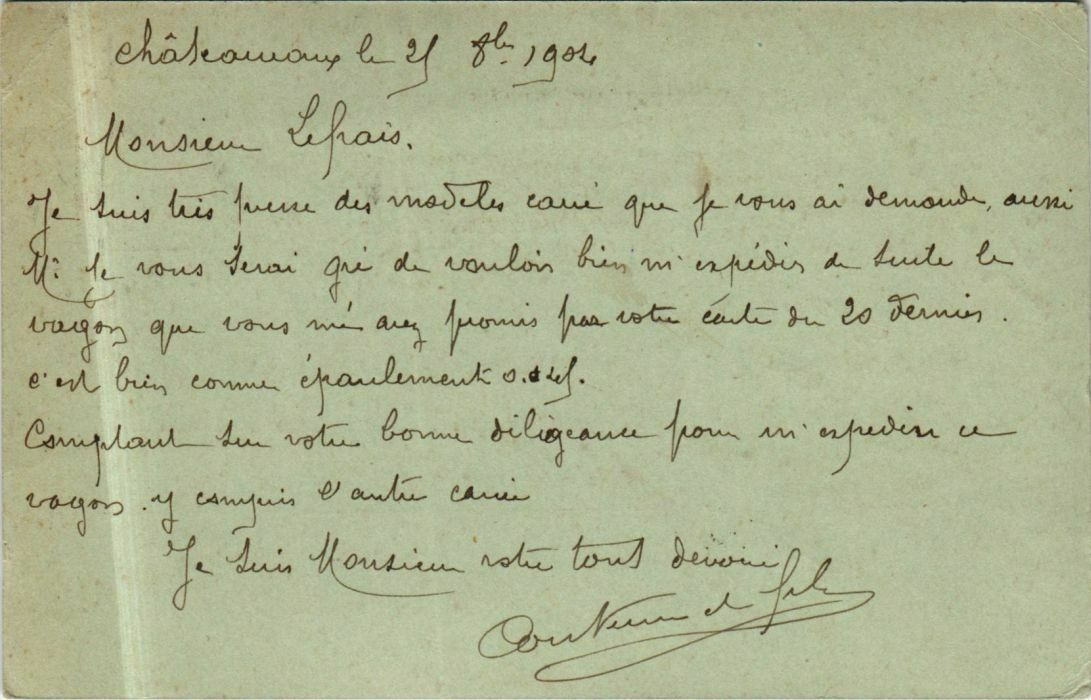 Châteauroux le 25 8bre 1904
Monsieur Lefrais.
Je suis très pressé des modèles carré que je vous ai demandé, aussi
Mr je vous serai gré de vouloir bien m'expédier de suite le
vagon que vous m'avez promis par votre carte du 20 dernier.
c'est bien comme épaulement 0.
Comptant sur votre bonne diligeance pour m'expedier ce
vagon. y compris l'autre carré
Je suis Monsieur votre tout dévoué
et fils